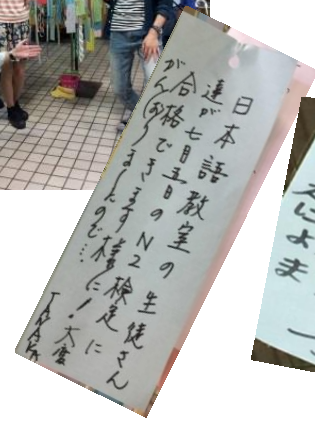 日本語教室の生徒さん
達が七月五日のN2検定に
合格できます様に!大変
がんばりましたので…
によ
ま